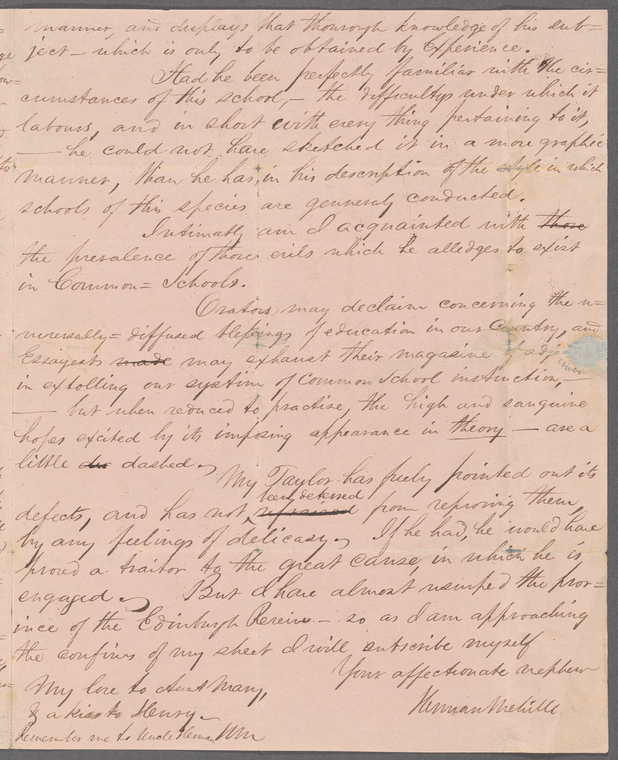 manner, and displays that thorough knowledge of his sub-
ject — which is only to be obtained by Experience.
Had he been perfectly familiar with the cir=
cumstances of this school, — the difficultys under which it
labours, and in short with every thing pertaining to it,
— he could not have sketched it in a more graphic
manner, than he has, in his description of the style in which
schools of this species are generaly conducted.
Intimatly am I acquainted with those
the prevalence of those evils which he alledges to exist
in Common= Schools.
Orators may declaim concerning the u=
niversally= diffused blessings of education in our Country, and
Essayests made may exhaust their magazine of adjectives
in extolling our system of Common School instruction, —
— but when reduced to practise, the high and sanguine
hopes excited by its imposing appearance in theory — are a
little dashed.
My Taylor has freely pointed out its
been detered
defects, and has not refrained from reproving them,
by any feelings of delicasy. If he had, he would have
proved a traitor to the great cause, in which he is
engaged. But I have almost usurped the prov=
ince of the Edinburgh Review — so as I am approaching
the confines of my sheet I will subscribe myself
Your affectionate nephew
Herman Melville
My love to Aunt Mary,
& a kiss to Henry —
Remember me to Uncle Herman